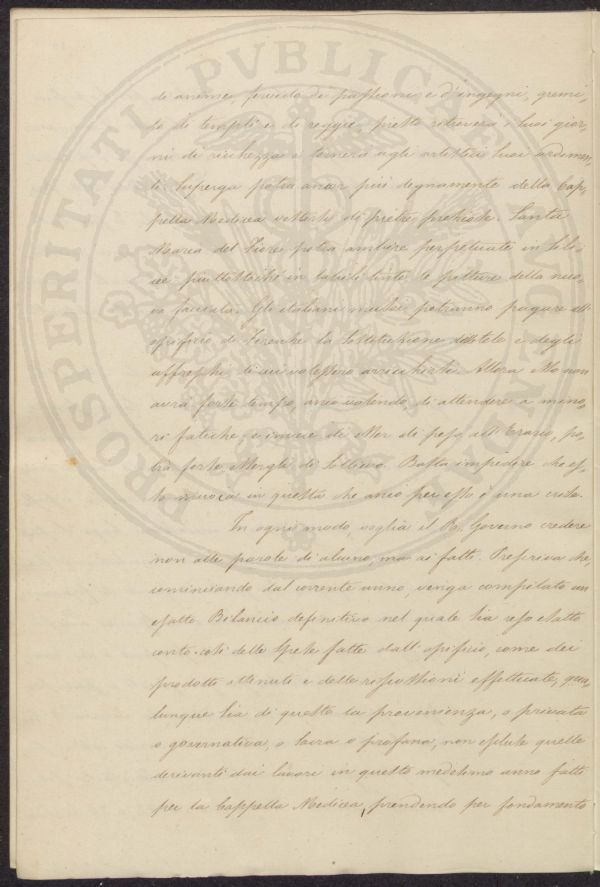 di anime, fervido di passioni e d'ingegni, gremi,
to di templi e di reggie, presto ritroverà i suoi gior,
ni di ricchezza e tornerà agli artistici suoi ardimen,
ti. Superga potrà ancor più degnamente della Cap,
pella Medicea vestirsi di pietre preziose. Santa
Maria del Fiore potrà ambire perpetuate in sili,
cei piuttostochè in tasselli tinti le pitture della nuo,
va facciata. Gli italiani musei potranno pagare all'
opificio di Firenze la sostituzione delle tele e degli
affreschi di cui volessero arricchirsi. Allora esso non
avrà forse tempo, anco volendo, di attendere a mino,
ri fatiche, e invece di esser di peso all'Erario, po,
trà forse essergli di sollievo. Basta impedire che es,
so muoia in questa che anco per esso è una crisi.
In ogni modo, voglia il R. Governo credere
non alle parole di alcuno, ma ai fatti. Prescriva che,
cominciando dal corrente anno, venga compilato un
esatto Bilancio definitivo nel quale sia reso esatto
conto così delle spese fatte dall'opificio, come dei
prodotti ottenuti e delle riscossioni effettuate, qua,
lunque sia di queste la provenienza, o privata
o governativa, o sacra o profana, non escluse quelle
derivanti dai lavori in questo medesimo anno fatti
per la Cappella Medicea, prendendo per fondamento
PROSPERITATI PVBLICAE